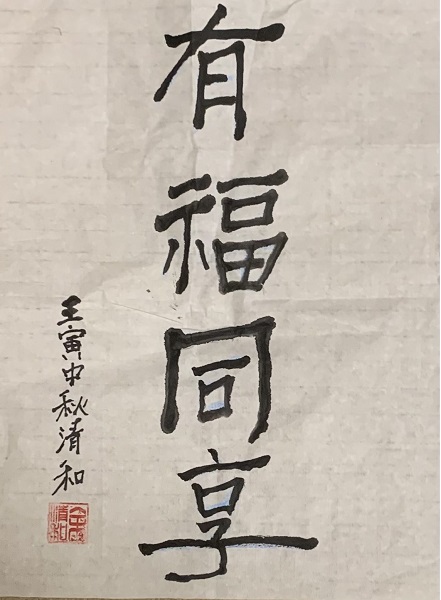 有福同享
壬寅中秋清和